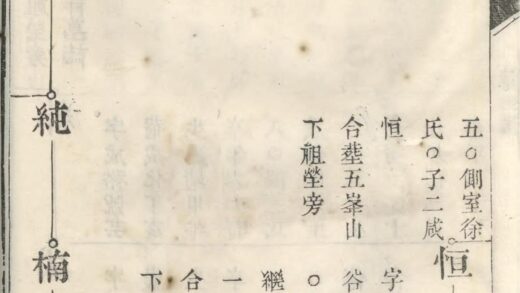 五○側室徐
氏○子二咸
恒
合塟五峯山
下祖塋旁
純
恒
字
谷
○
繼
一
合
下
楠